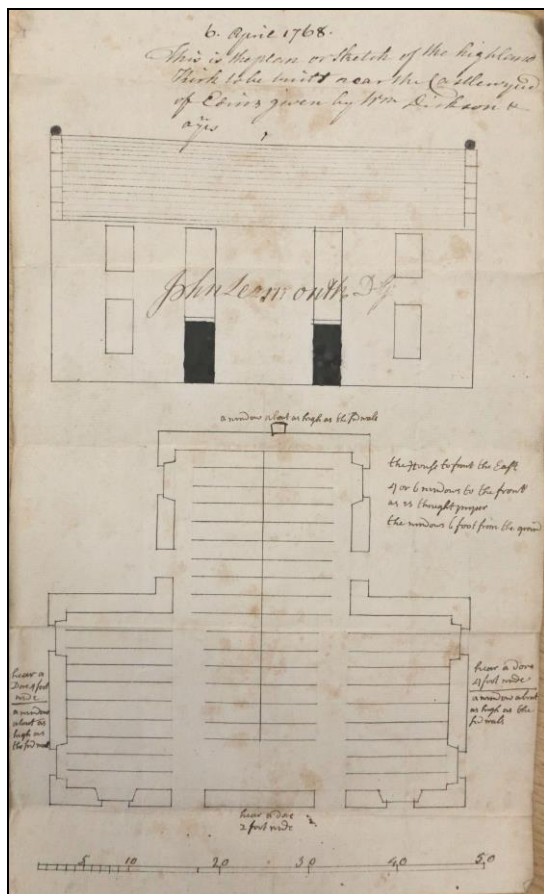 6. April 1768.
This is the plan or Sketch of the highland
Kirk to be built near the Castlewynd
of Edinr given by Wm Dickson &
John Learmonth
a window about as high as the sid walls
the House to front the East
4 or 6 windows to the front
as is thought proper
the windows 6 foot from the ground
hear a
Dore 4 foot
wide
a window
about as
high as
the sid wall
hear a dore
4 foot wide
a window about
as high as the
sid wals
hear a dore
2 foot wide
5 10 20 30 40 50